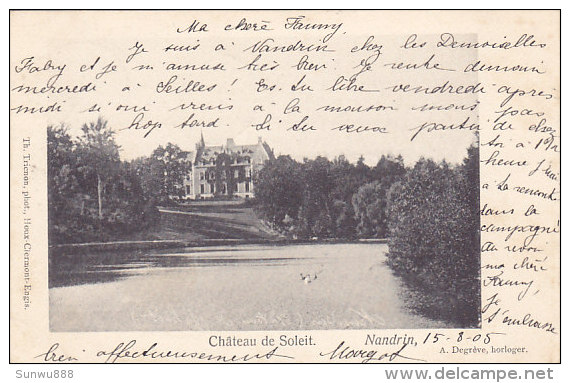 Ma chère Fanny.
Je suis à Nandrin chez les Demoiselles
Fabry et je m'amuse très bien. Je rentre demain
mercredi à Seilles! Es. tu libre vendredi après
midi si oui viens à la maison mais pas
trop tard. Si tu veux partir de chez
toi à 1 1/2
heure j'irai
à ta rencontre
dans la
campagne
au revoir
ma chère
Fanny,
je
t'embrasse
bien affectueusement Margot
Th. Trignon, phot., Heux-Clermont-Engis.
Château de Soleit. Nandrin, 15-8-05
A. Degrève, horloger.
© www.delcampe.net
Sunny888